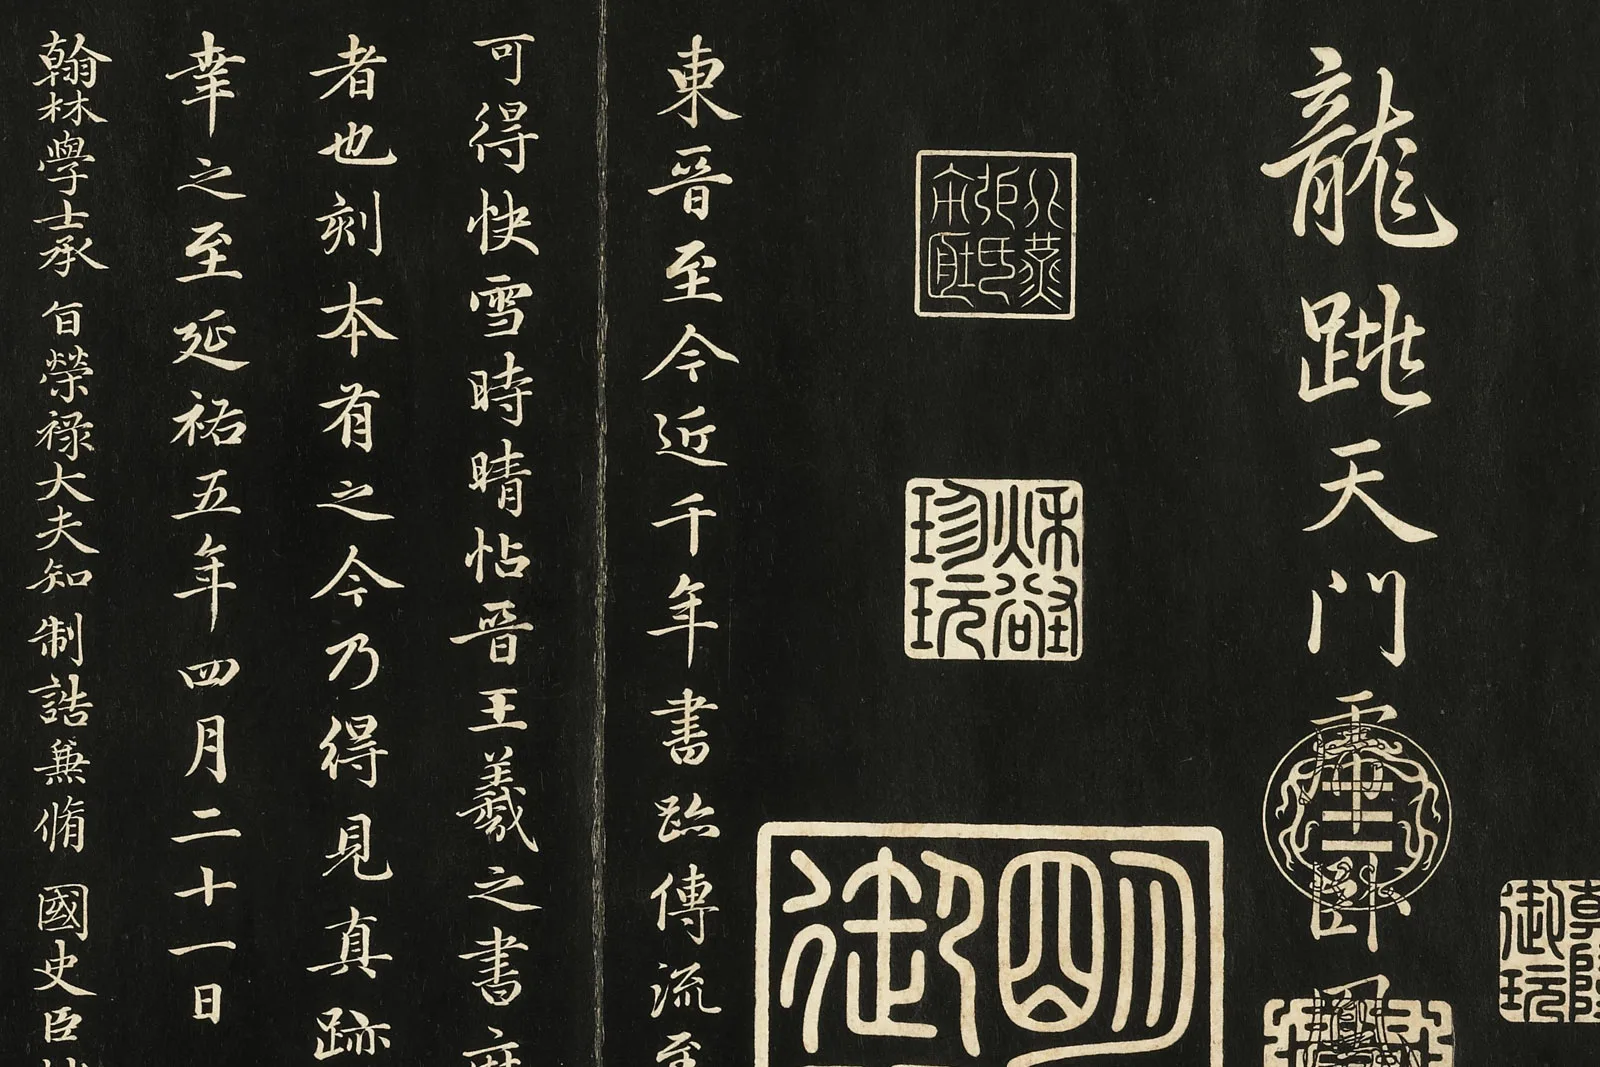 龍跳天門虎臥鳳
珍玩
御
御玩
東晉至今近千年書跡傳流至
可得快雪時晴帖晉王羲之書歷
者也刻本有之今乃得見真跡
幸之至延祐五年四月二十一日
翰林學士承旨榮祿大夫知制誥兼脩國史臣